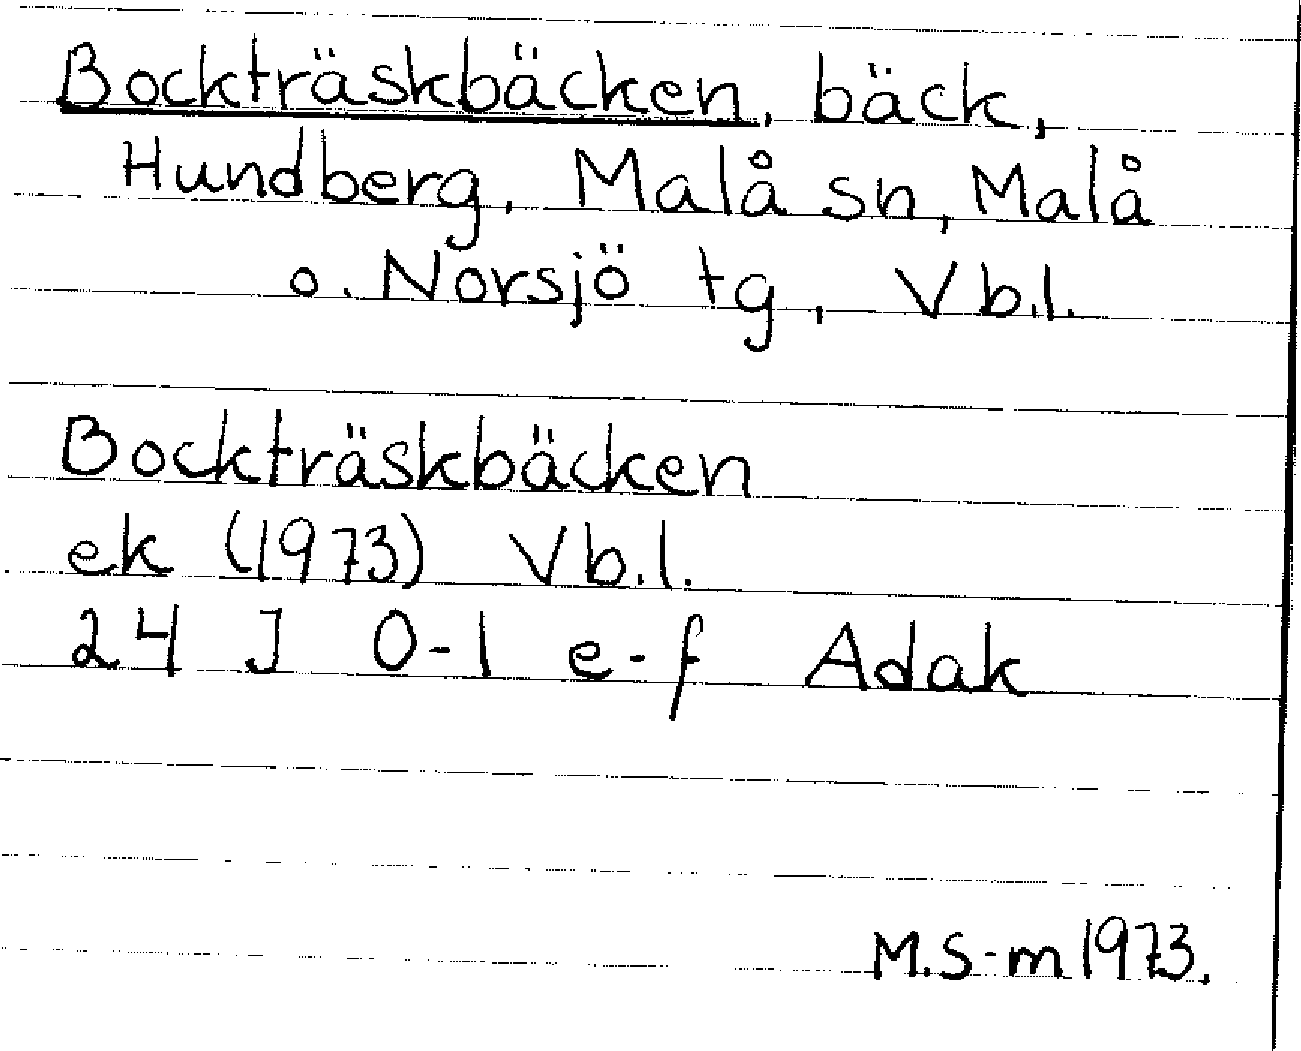 Bockträskbäcken, bäck,
Hundberg, Malå sn, Malå
o. Norsjö tg, Vb.l.
Bockträskbäcken
ek (1973) Vb.l.
24 J 0-1 e-f Adak
M.S-m 1973.